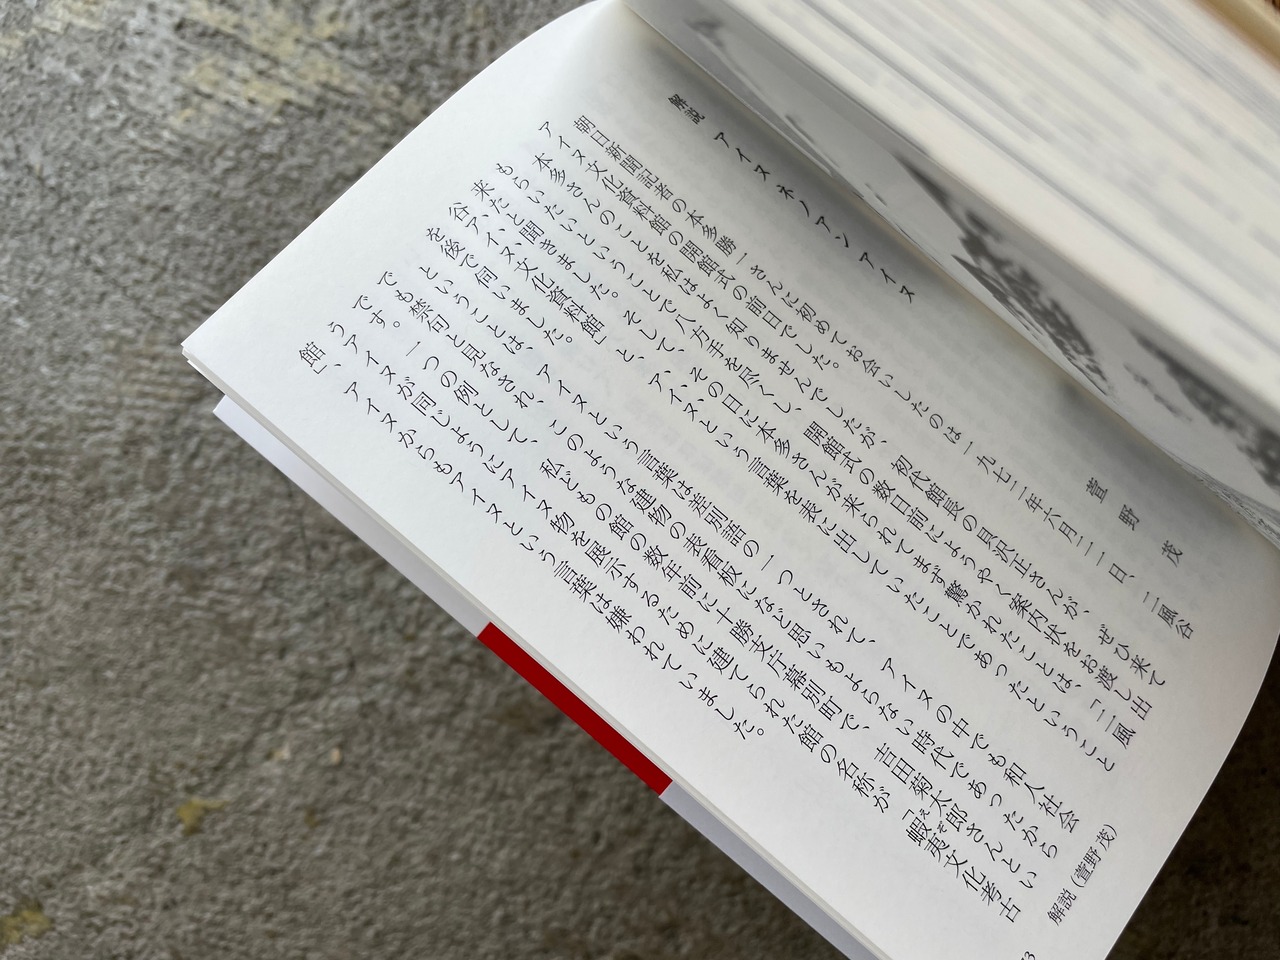 解説 アイヌ ネノアン アイヌ
萱野 茂
朝日新聞記者の本多勝一さんに初めてお会いしたのは一九七二年六月二二日、二風谷
アイヌ文化資料館の開館式の前日でした。
本多さんのことを私はよく知りませんでしたが、初代館長の貝沢正さんが、ぜひ来て
もらいたいということで八方手を尽くし、開館式の数日前にようやく案内状をお渡し出
来たと聞きました。そして、その日に本多さんが来られてまず驚かれたことは、「二風
谷アイヌ文化資料館」と、アイヌという言葉を表に出していたことであったということ
を後で伺いました。
ということは、アイヌという言葉は差別語の一つとされて、アイヌの中でも和人社会
でも禁句と見なされ、このような建物の表看板になど思いもよらない時代であったから
です。一つの例として、私どもの館の数年前に十勝支庁幕別町で、吉田菊太郎さんとい
うアイヌが同じようにアイヌ物を展示するために建てられた館の名称が「蝦夷文化考古
館」、アイヌからもアイヌという言葉は嫌われていました。
解説（萱野 茂）